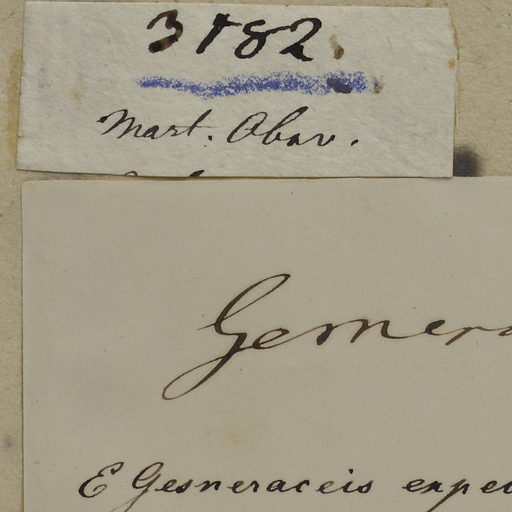 3182.
Mart. Obsv.
Gesnera
E Gesneraceis expe